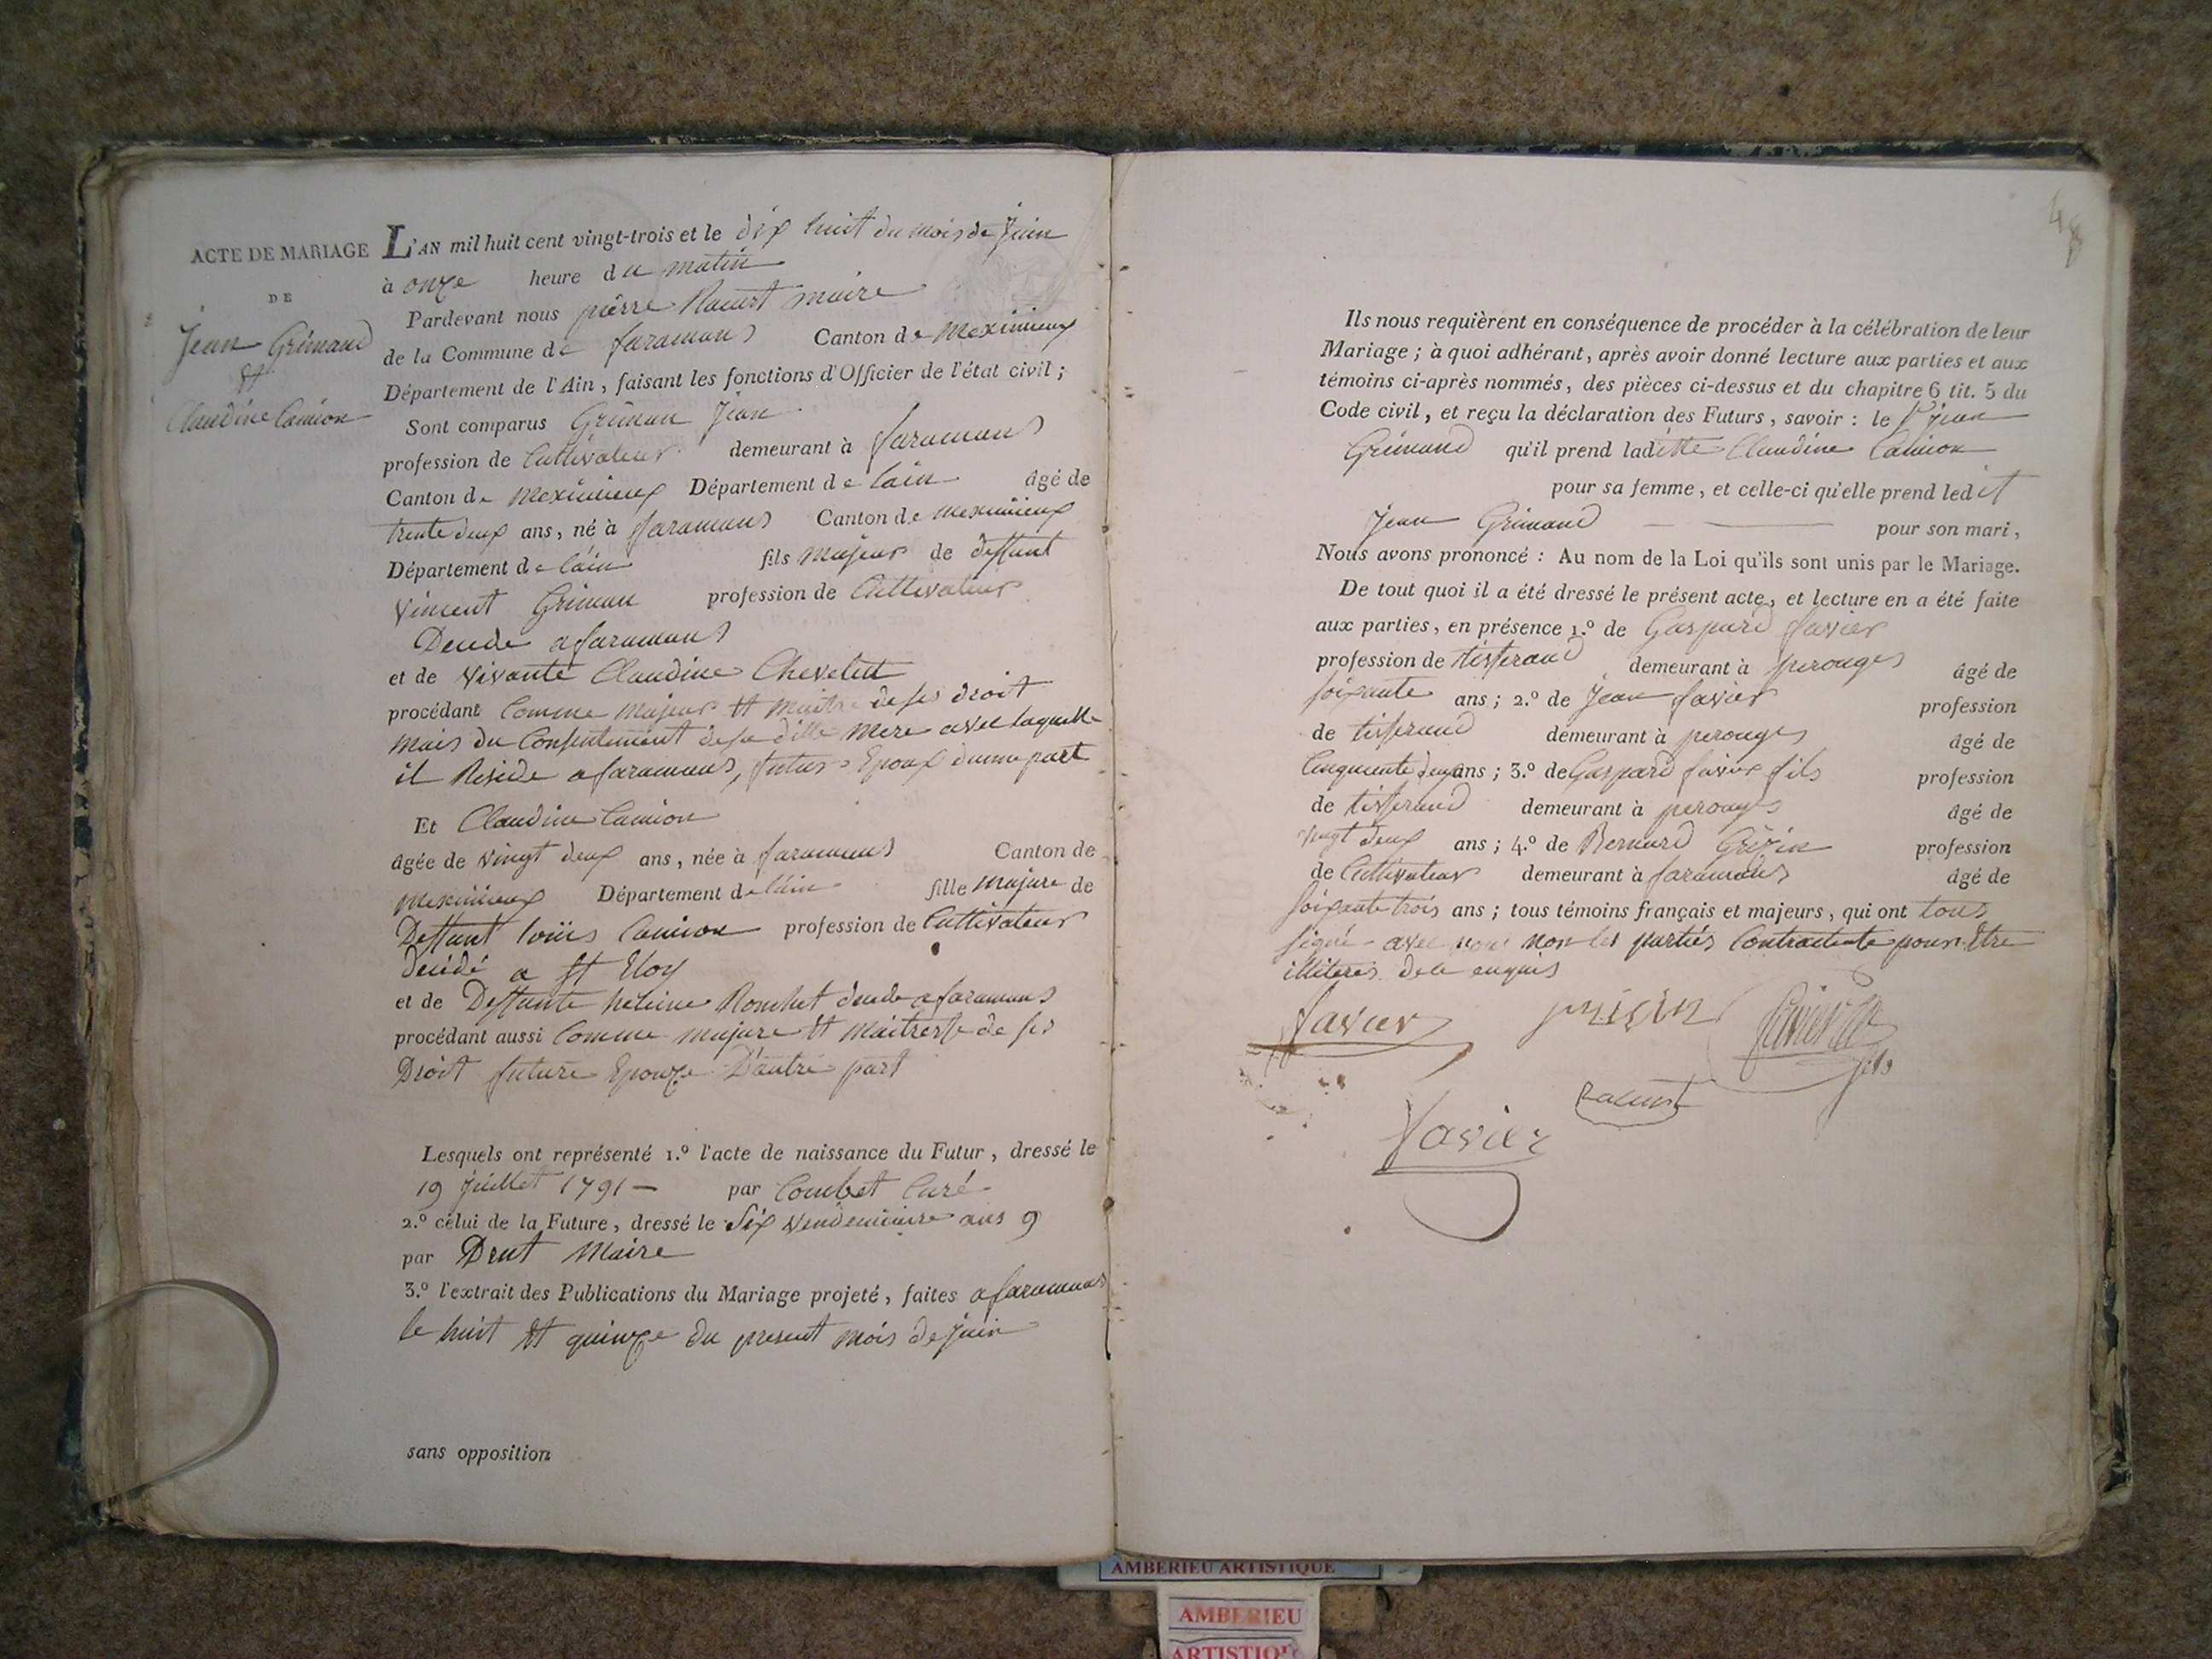 ACTE DE MARIAGE
DE
Jean Grimaud
Et
Claudine Camion
L'AN mil huit cent vingt-trois et le dix huit du mois de Juin
à onze heure du matin
Pardevant nous pierre Racurt maire
de la Commune de faramans Canton de Meximieux
Département de l'Ain, faisant les fonctions d'Officier de l'état civil;
Sont comparus Grimau Jean
profession de Cultivateur demeurant à faramans
Canton de Meximieux Département de lain âgé de
trente deux ans, né à faramans Canton de meximieux
Département de láin fils majeur de deffunt
Vincent Grimau profession de Cultivateur
Decede a faramans
et de vivante Claudine Chevelett
procédant Comme Majeur Et Maitre de ses droit
Mais du Consentement de sa ditte Mere avec laquelle
il Reside a faramans, futur Epoux dunne part
Et Claudine Camion
âgée de vingt deux ans, née à faramans Canton de
Meximieux Département de láin fille Majure de
Deffunt loüis Camion profession de Cultivateur
Decédé a St Eloy
et de Deffunte heleine Rombet decede a faramans
procédant aussi Comme majure Et Maitresse de ses
Droit future Epouze D'autre part
Lesquels ont représenté 1.º l'acte de naissance du Futur, dressé le
19 Juillet 1791 — par Combet Curé
2.º célui de la Future, dressé le Six vendemiaire ans 9
par Drut Maire
3.º l'extrait des Publications du Mariage projeté, faites a faramans
le huit Et quinze du present mois de Juin
sans opposition
48
Ils nous requièrent en conséquence de procéder à la célébration de leur
Mariage; à quoi adhérant, après avoir donné lecture aux parties et aux
témoins ci-après nommés, des pièces ci-dessus et du chapitre 6 tit. 5 du
Code civil, et reçu la déclaration des Futurs, savoir: le Sr Jean
Grimaud qu'il prend laditte Claudine Camion
pour sa femme, et celle-ci qu'elle prend ledit
Jean Grimaud — — pour son mari,
Nous avons prononcé: Au nom de la Loi qu'ils sont unis par le Mariage.
De tout quoi il a été dressé le présent acte, et lecture en a été faite
aux parties, en présence 1.º de Gaspard favier
profession de tisserand demeurant à perouges âgé de
soixante ans; 2.º de Jean favier profession
de tisserand demeurant à perouges âgé de
Cinquente deux ans; 3.º de Gaspard favier fils profession
de tisserand demeurant à perouges âgé de
vingt deux ans; 4.º de Bernard Grizin profession
de Cultivateur demeurant à faramans âgé de
soixante trois ans; tous témoins français et majeurs, qui ont tous
signé avec nous non les parties Contractante pour Etre
illiteres de ce enquis
favier grizin favier
fils
Racurt
favier
AMBERIEU ARTISTIQUE
AMBERIEU
ARTISTIQUE